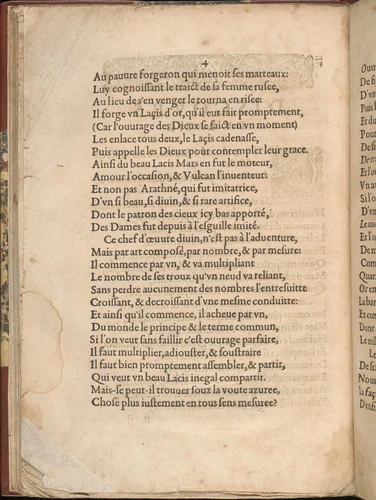 4
Au pauure forgeron qui menoit ses marteaux:
Luy cognoissant le traict de sa femme rusee,
Au lieu de s'en venger le tourna en risee:
Il forge vn Laçis d'or, qu'il eut fait promptement,
(Car l'ouurage des Dieux se faict en vn moment)
Les enlace tous deux, le Laçis cadenasse,
Puis appelle les Dieux pour cōtempler leur grace.
Ainsi du beau Lacis Mars en fut le moteur,
Amour l'occasion, & Vulcan l'inuenteur:
Et non pas Arathné, qui fut imitatrice,
D'vn si beau, si diuin, & si rare artifice,
Dont le patron des cieux icy bas apporté,
Des Dames fut depuis à l'esguille imité.
Ce chef d'œuure diuin, n'est pas à l'aduenture,
Mais par art composé, par nombre, & par mesure:
Il commence par vn, & va multipliant
Le nombre de ses trouz qu'vn neud va reliant,
Sans perdre aucunement des nombres l'entresuitte
Croissant, & decroissant d'vne mesme conduitte:
Et ainsi qu'il commence, il acheue par vn,
Du monde le principe & le terme commun,
Si l'on veut sans faillir c'est ouurage parfaire,
Il faut multiplier, adiouster, & soustraire
Il faut bien promptement assembler, & partir,
Qui veut vn beau Lacis inegal compartir.
Mais-se peut-il trouuer souz la voute azuree,
Chose plus iustement en tous sens mesuree?